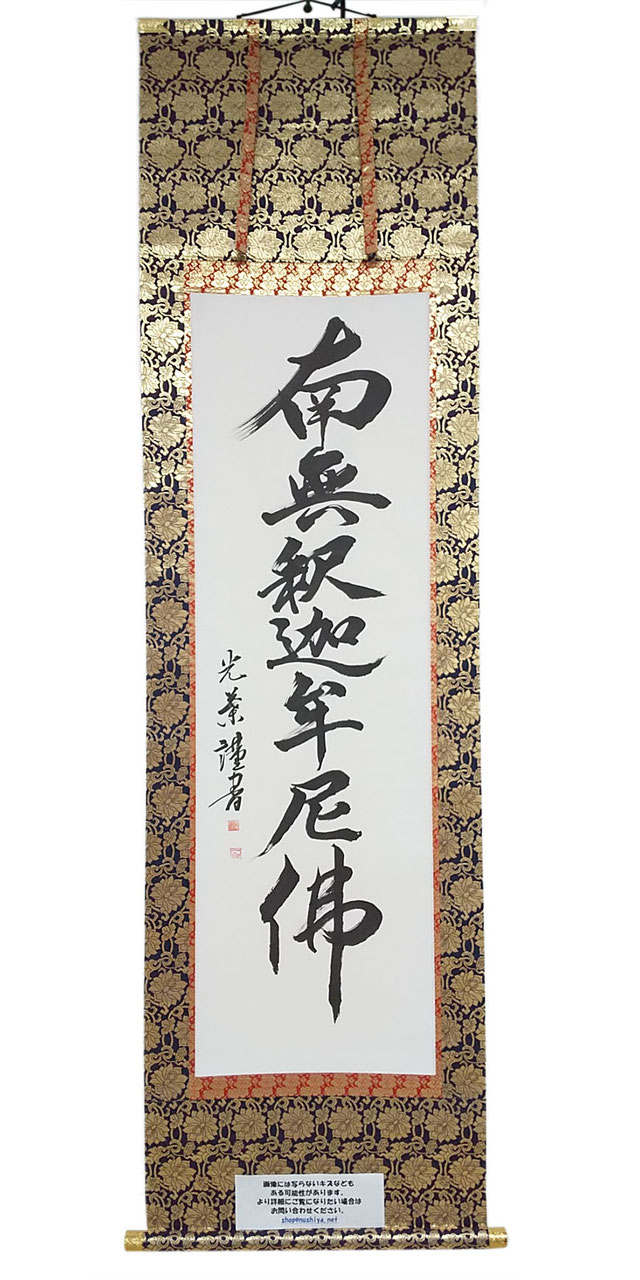 南無釈迦牟尼佛
光葉謹書
画像には写らないキズなども
ある可能性があります。
より詳細にご覧になりたい場合は
お問い合わせください。
shop@nushiya.net